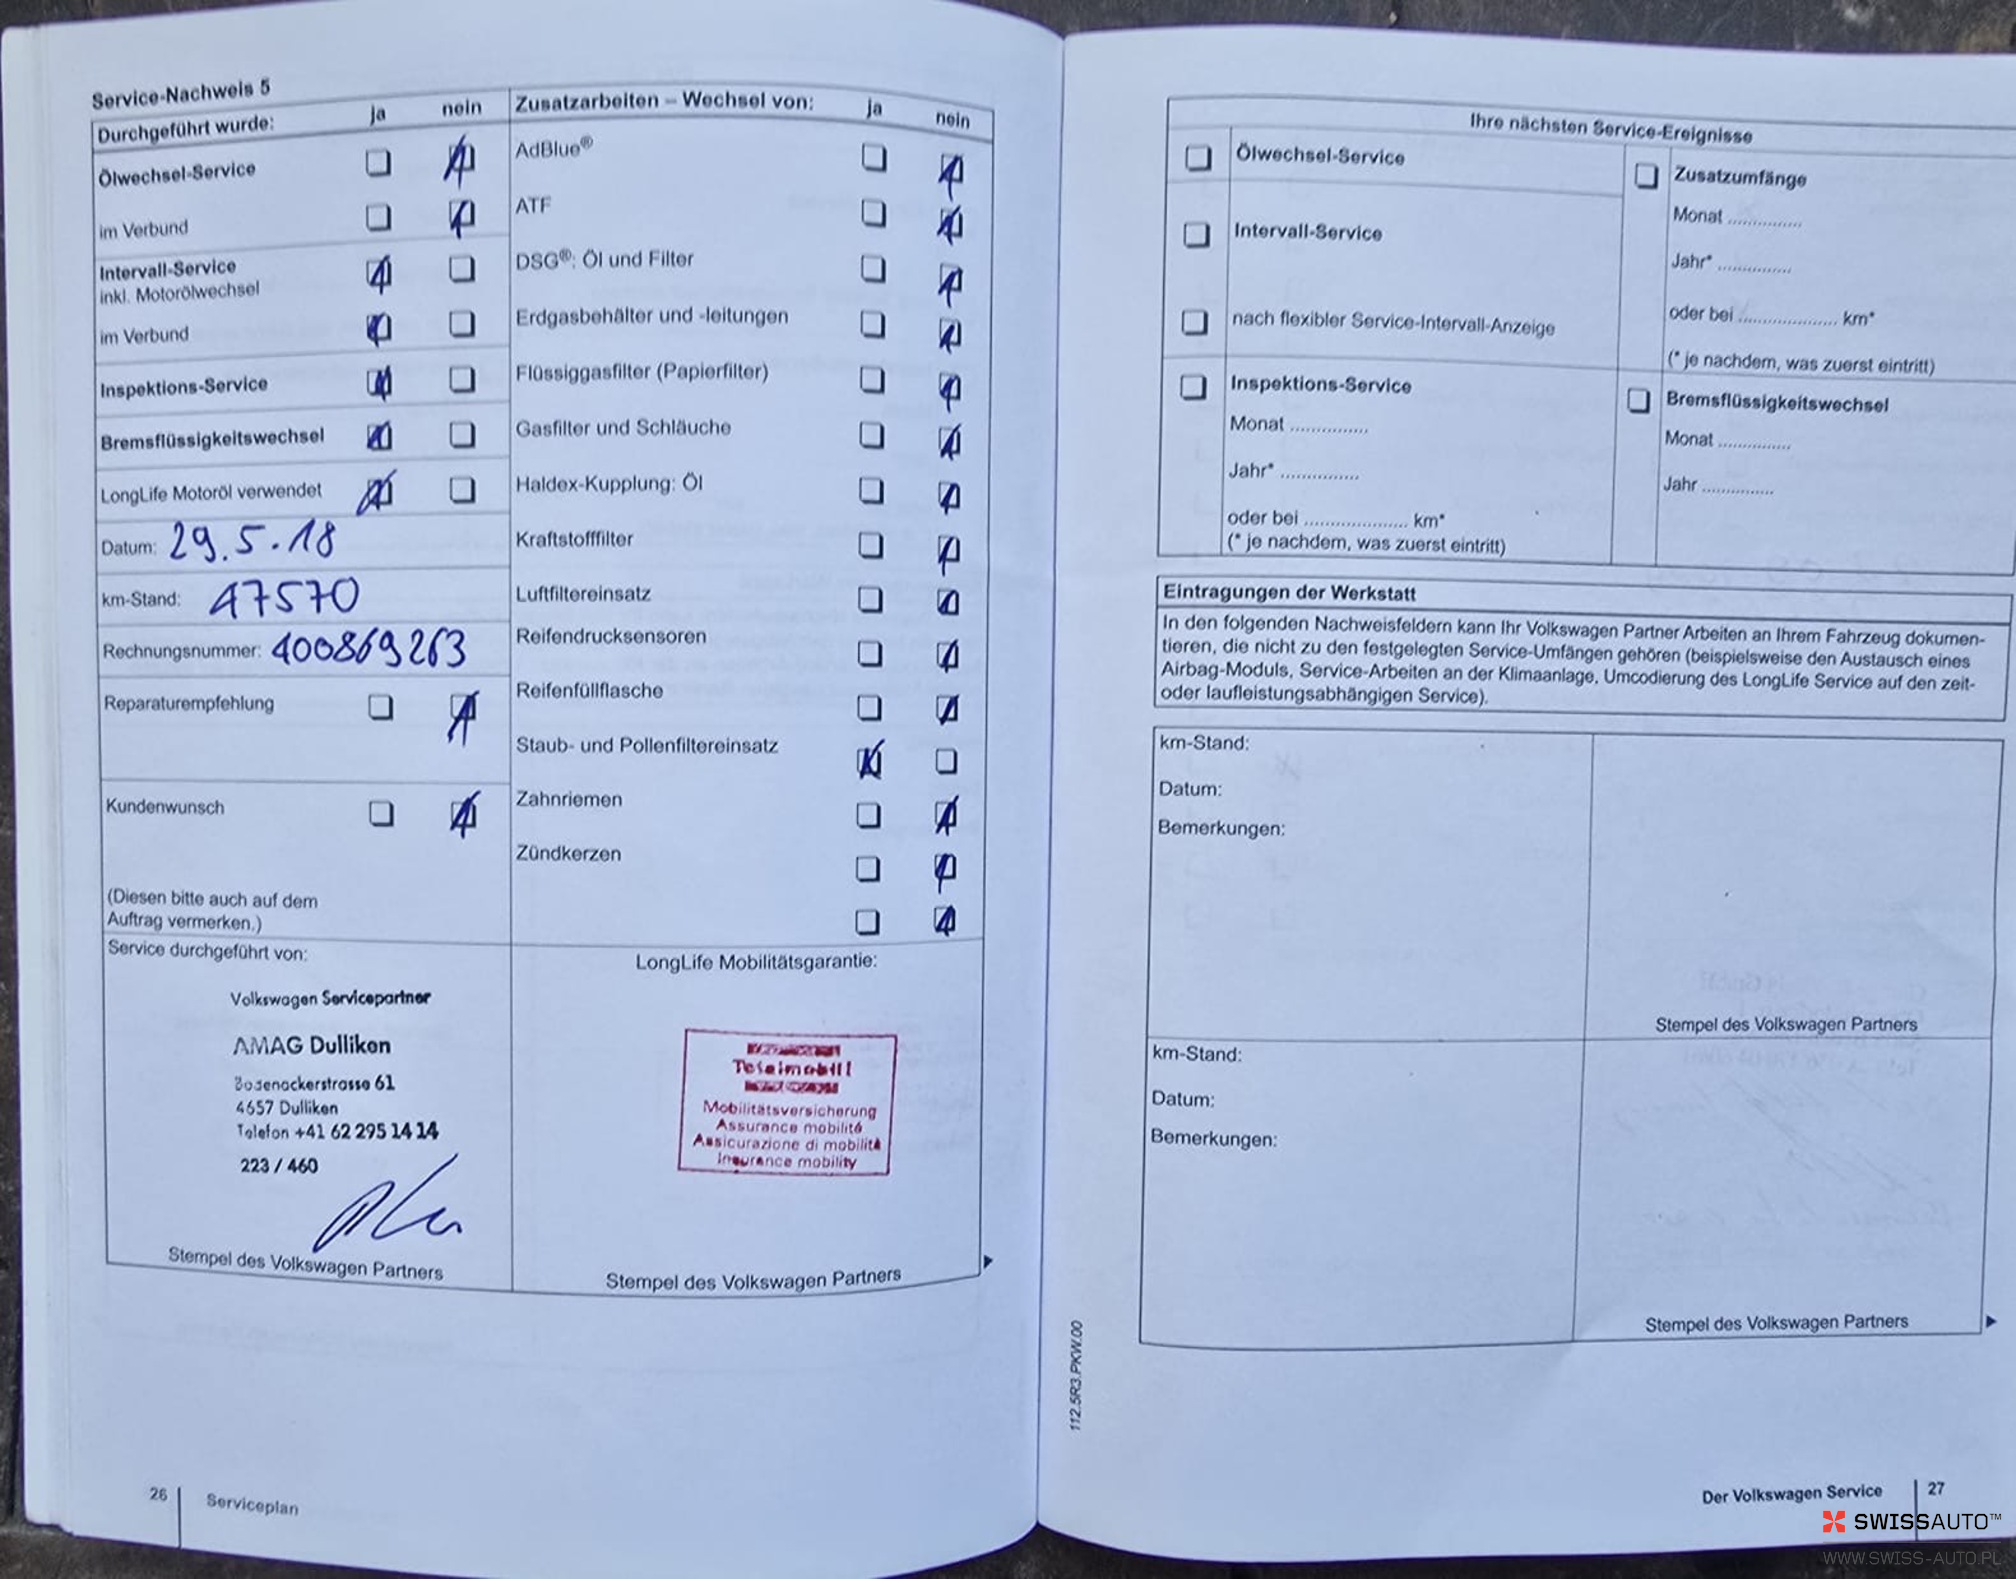 Service-Nachweis 5
Durchgeführt wurde: ja nein
Ölwechsel-Service
im Verbund
Intervall-Service
inkl. Motorölwechsel
im Verbund
Inspektions-Service
Bremsflüssigkeitswechsel
LongLife Motoröl verwendet
Datum: 29.5.18
km-Stand: 47570
Rechnungsnummer: 400869263
Reparaturempfehlung
Kundenwunsch
(Diesen bitte auch auf dem
Auftrag vermerken.)
Zusatzarbeiten – Wechsel von: ja nein
AdBlue®
ATF
DSG®: Öl und Filter
Erdgasbehälter und -leitungen
Flüssiggasfilter (Papierfilter)
Gasfilter und Schläuche
Haldex-Kupplung: Öl
Kraftstofffilter
Luftfiltereinsatz
Reifendrucksensoren
Reifenfüllflasche
Staub- und Pollenfiltereinsatz
Zahnriemen
Zündkerzen
Service durchgeführt von:
Volkswagen Servicepartner
AMAG Dulliken
Bodenackerstrasse 61
4657 Dulliken
Telefon +41 62 295 14 14
223 / 460
Stempel des Volkswagen Partners
LongLife Mobilitätsgarantie:
Totalmobil!
Mobilitätsversicherung
Assurance mobilité
Assicurazione di mobilità
Insurance mobility
Stempel des Volkswagen Partners
26 Serviceplan
Ihre nächsten Service-Ereignisse
Ölwechsel-Service
Intervall-Service
nach flexibler Service-Intervall-Anzeige
Inspektions-Service
Monat ...............
Jahr* ...............
oder bei .................... km*
(* je nachdem, was zuerst eintritt)
Zusatzumfänge
Monat ...............
Jahr* ...............
oder bei .................... km*
(* je nachdem, was zuerst eintritt)
Bremsflüssigkeitswechsel
Monat ...............
Jahr ...............
Eintragungen der Werkstatt
In den folgenden Nachweisfeldern kann Ihr Volkswagen Partner Arbeiten an Ihrem Fahrzeug dokumen-
tieren, die nicht zu den festgelegten Service-Umfängen gehören (beispielsweise den Austausch eines
Airbag-Moduls, Service-Arbeiten an der Klimaanlage, Umcodierung des LongLife Service auf den zeit-
oder laufleistungsabhängigen Service).
km-Stand:
Datum:
Bemerkungen:
Stempel des Volkswagen Partners
km-Stand:
Datum:
Bemerkungen:
Stempel des Volkswagen Partners
112.5R3.PKW.00
Der Volkswagen Service 27
SWISSAUTO™
WWW.SWISS-AUTO.PL